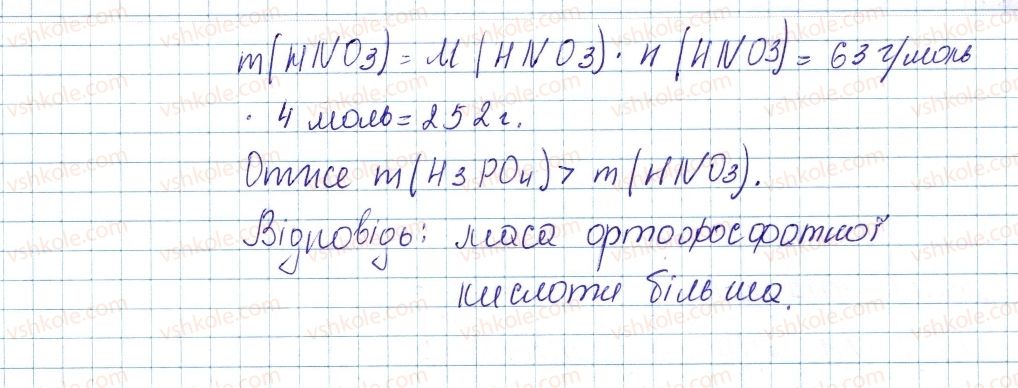 m(HNO3) = M(HNO3) · n(HNO3) = 63 г/моль
· 4 моль = 252 г.
Отже m(H3PO4) > m(HNO3).
Відповідь: маса ортофосфатної
кислоти більша.